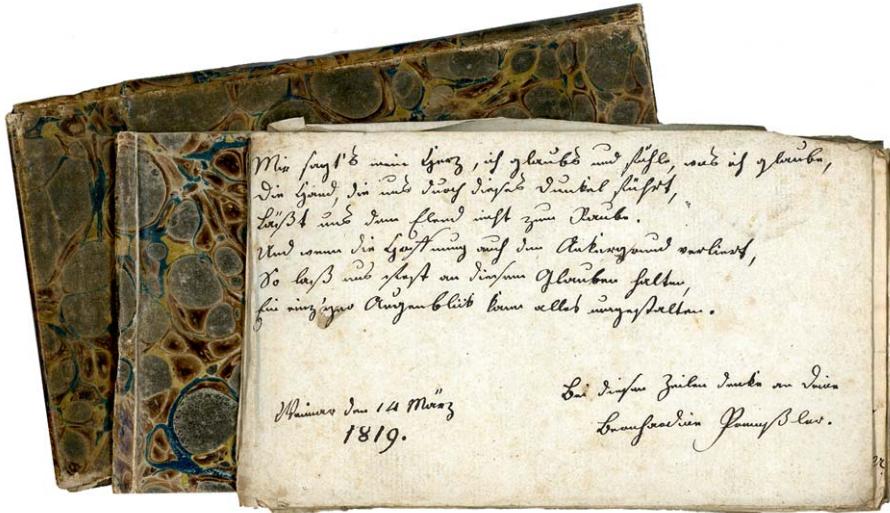 Mir sagt's mein Herz, ich glaub's und fühle, was ich glaube,
Die Hand, die uns durch dieses Dunkel führt,
Läßt uns dem Elend nicht zum Raube.
Und wenn die Hoffnung auch den Ankergrund verliert,
So laß uns fest an diesem Glauben halten,
Ein einz'ger Augenblick kann alles umgestalten.
Weimar den 14 März
1819.
Bei diesen Zeilen denke an Deine
Bernhardine